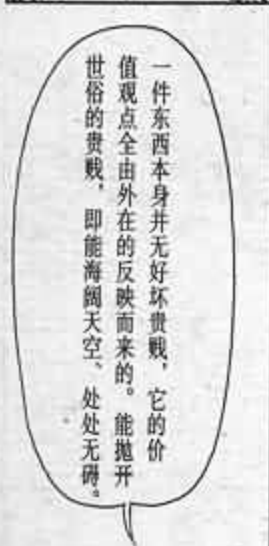 一件东西本身并无好坏贵贱，它的价
值观点全由外在的反映而来的。能抛开
世俗的贵贱，即能海阔天空、处处无碍。